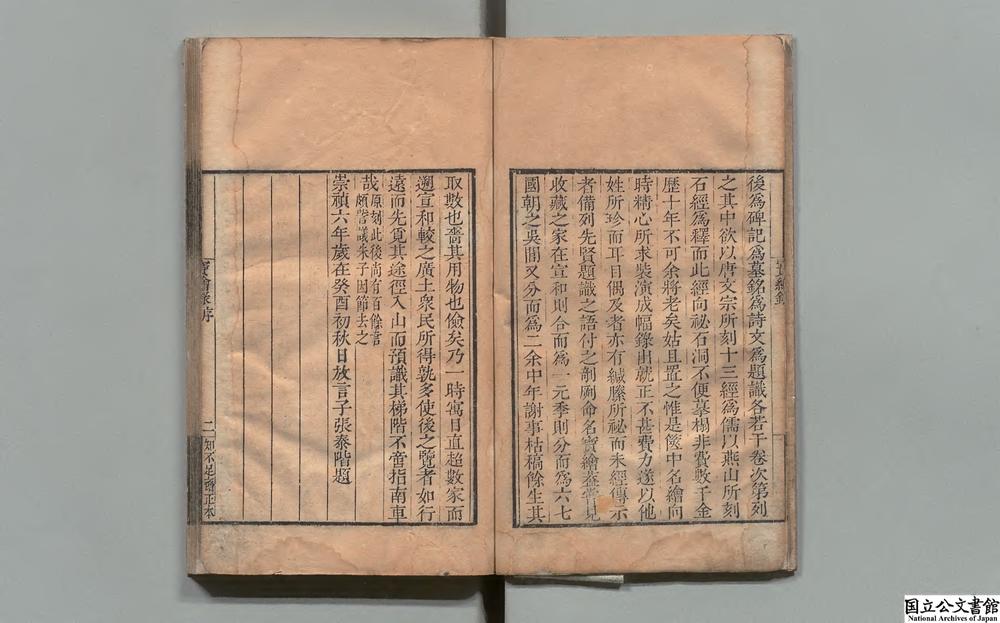 後爲碑記爲墓銘爲詩文爲題識各若干卷次第列
之其中欲以唐文宗所刻十三經爲儒以燕山所刻
石經爲釋而此經向祕石洞不便摹搨非費數千金
歷十年不可余將老矣姑且置之惟是篋中名繪向
時精心所求裝演成幅錄出就正不甚費力遂以他
姓所珍而耳目偶及者亦有緘縢所祕而未經傳示
者備列先賢題識之語付之剞劂命名寶繪葢嘗見
收藏之家在宣和則合而爲一元季則分而爲六七
國朝之吳閶又分而爲二余中年謝事枯稿餘生其
寶繪錄
取數也嗇其用物也儉矣乃一時寓目直超數家而
遡宣和較之廣土衆民所得孰多使後之覽者如行
遠而先覓其途徑入山而預識其梯階不啻指南車
哉
原刻此後尚有百餘言
頗訾議朱子因節去之
崇禎六年歲在癸酉初秋日放言子張泰階題
寶繪錄序
二
知不足齋正本
国立公文書館
National Archives of Japan